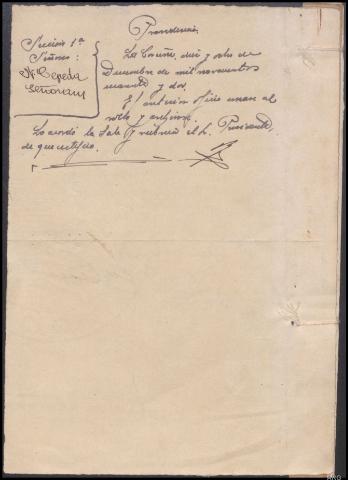 Providencia
Sección 1ª
Señores:
N. Cepeda
Señorans
La Coruña, diez y ocho de
Diciembre de mil novecientos
cuarenta y dos.
El anterior oficio únase al
rollo y archívese.
Lo acordó la Sala y rubrica el S. Presidente,
de que certifico.